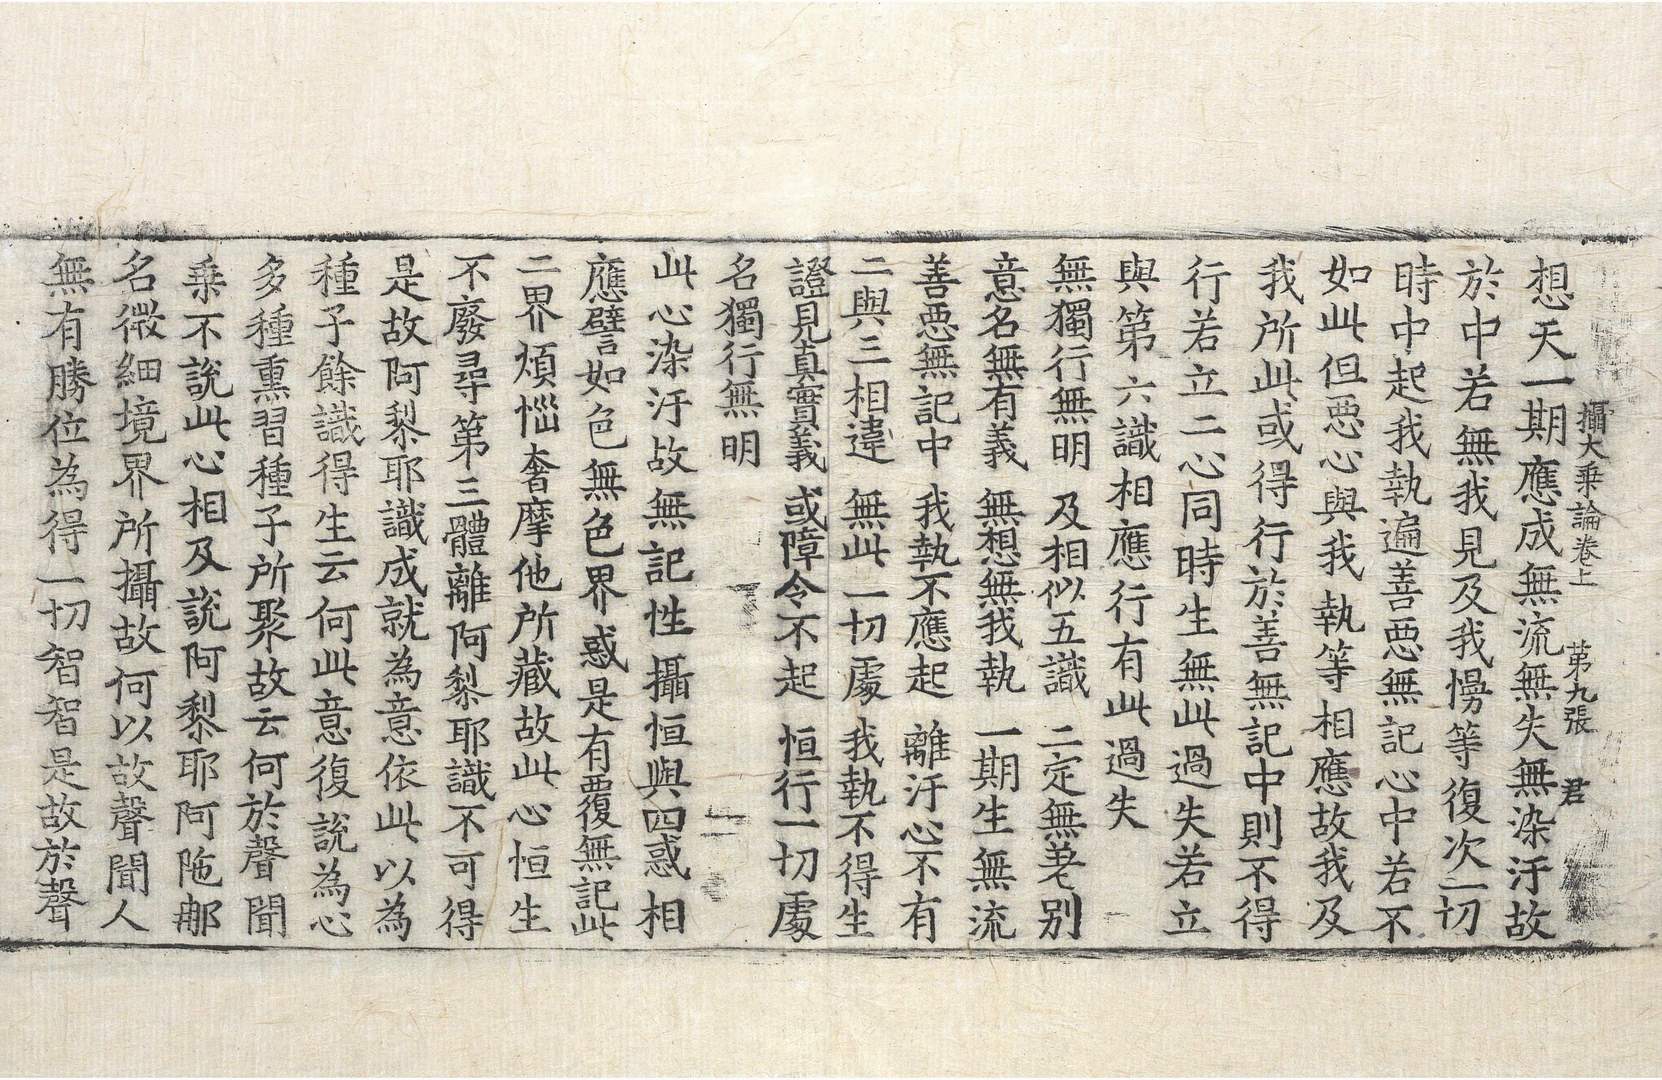 攝大乗論卷上 第九張 君
想天一期應成無流無失無染汙故
於中若無我見及我慢等復次一切
時中起我執遍善惡無記心中若不
如此但惡心與我執等相應故我及
我所此或得行於善無記中則不得
行若立二心同時生無此過失若立
與第六識相應行有此過失
無獨行無明 及相似五識 二定無差别
意名無有義 無想無我執 一期生無流
善惡無記中 我執不應起 離汙心不有
二與三相違 無此一切處 我執不得生
證見真實義 或障令不起 恒行一切處
名獨行無明
此心染汙故無記性攝恒與四惑相
應譬如色無色界惑是有覆無記此
二界煩惱奢摩他所藏故此心恒生
不廢尋第三體離阿梨耶識不可得
是故阿梨耶識成就為意依此以為
種子餘識得生云何此意復說為心
多種熏習種子所聚故云何於聲聞
乗不說此心相及說阿梨耶阿陁那
名微細境界所攝故何以故聲聞人
無有勝位為得一切智智是故於聲